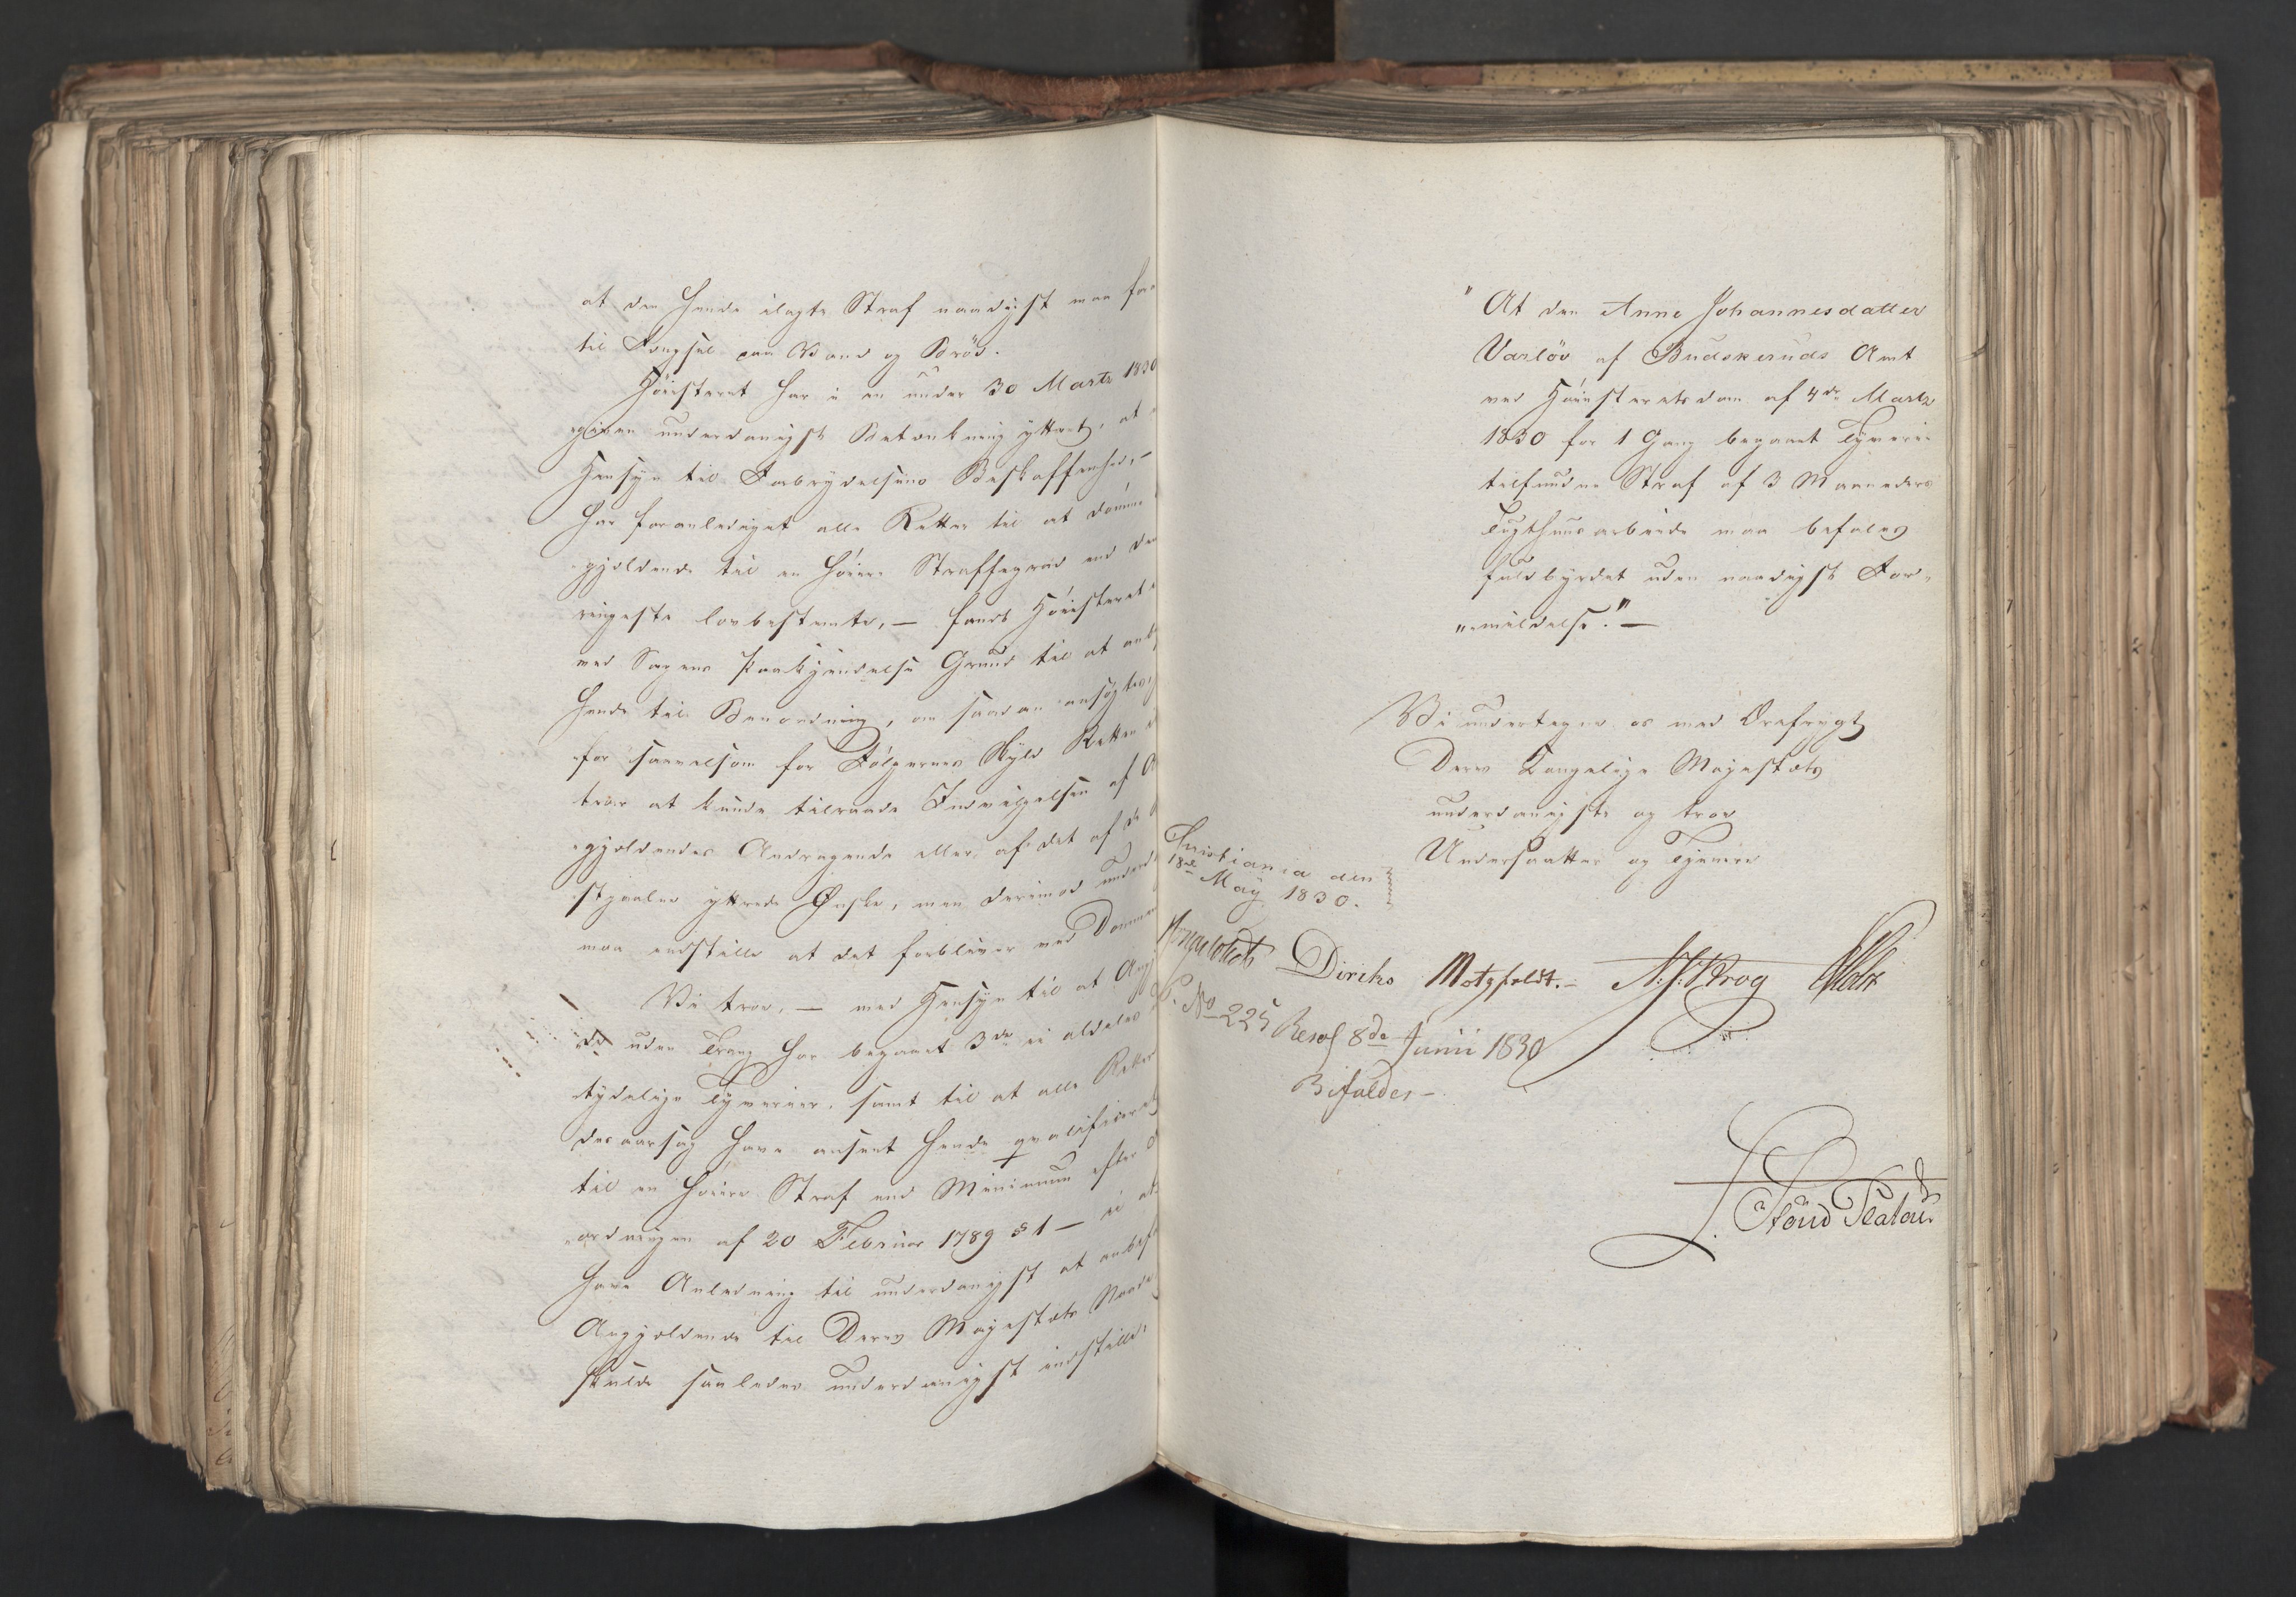 at den hende ilagte Straf naadigst maa for
til Fængsel paa Vand og Brød.
Høiesteret har i en under 30 Marts 1830
given underdanigst Betænkning yttret, at
Hensyn til Forbrydelsens Beskaffenhed, –
har foranlediget alle Retter til at dømme
gjeldende til en høiere Straffegrad end den
ringeste lovbestemte, – fandt Høiesteret
ved Sagens Paakjendelse Grund til at anb
hende til Benaadning, om saadan ansøgtes,
for saavelsom for Følgernes Skyld Retten
troer at kunde tilraade Indvilgelsen af A
gjeldendes Andragende eller af det af de
stjaalne yttrede Ønske, men derimod underd
maa indstille at det forbliver ved Dommen
Vi troe, – med Hensyn til at Angj
de uden Trang har begaaet 3de ei aldeles
tydelige Tyverier, samt til at alle Retter
desaarsag have anseet hende qvalificeret
til en høiere Straf end Minimum efter
ordningen af 20 Februar 1789 § 1 – ei at
have Anledning til underdanigst at anbef
Angjeldende til Deres Majestæts Naade
skulde saaledes underdanigst indstille:
"At den Anne Johannesdatter
Varløv af Buskeruds Amt
ved Høiesteretsdom af 4de Marts
1830 for 1 Gang begaaet Tyverie
tilfundne Straf af 3 Maaneders
Tugthuusarbeide maa befales
fuldbyrdet uden naadigst For-
"mildelse." –
Vi undertegne os med Ærefrygt
Deres Kongelige Majestæts
underdanigste og troe
Undersaatter og Tjenere
Christiania den
18de May 1830.
Diriks Motzfeldt. – N. J. Krog
No 225 Resol 8de Junii 1830
Bifaldes –